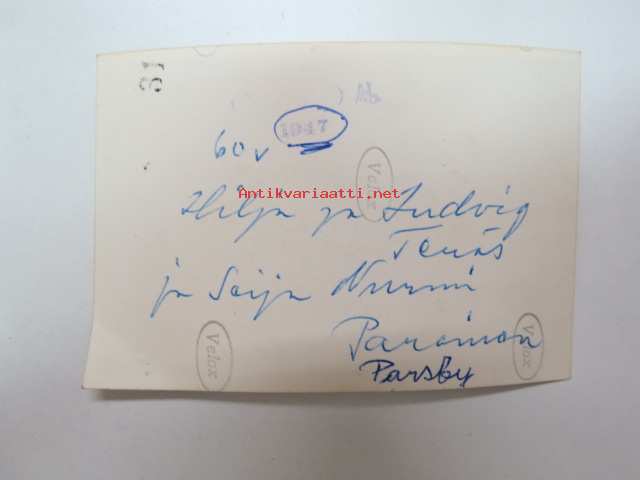 31
1947
60 v
Velox
Antikvariaatti.net
Hilja ja Ludvig
Teräs
ja Seija Nurmi
Velox
Velox
Paroinen
Parsby